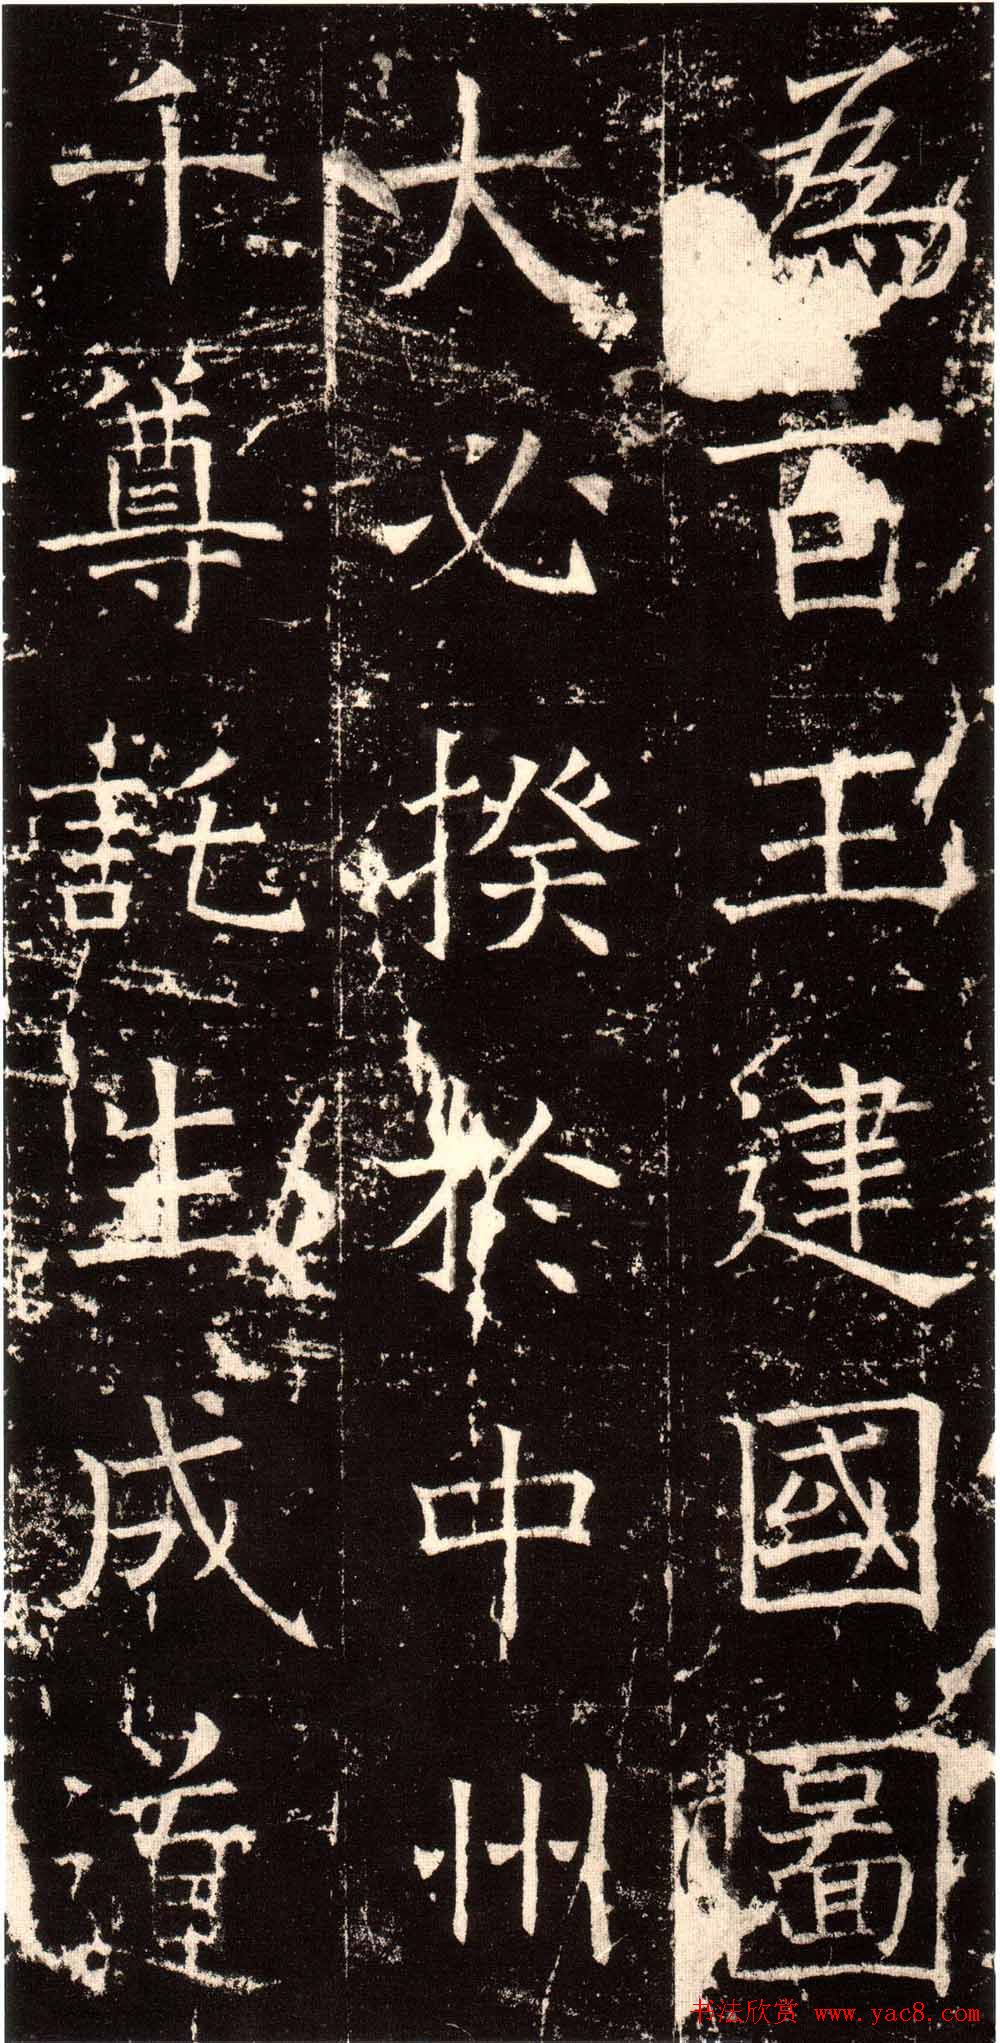 為百王建國圖
大必揆於中州
千尊託生成道
书法欣赏 www.yac8.com